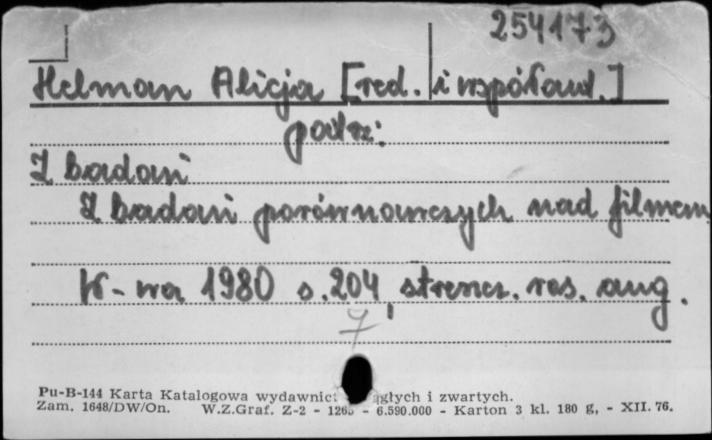 254173
Helman Alicja [red. i współaut.]
patrz:
Z badań
Z badań porównawczych nad filmem
W-wa 1980 s. 204, streszcz. ros. ang.
7
Pu-B-144 Karta Katalogowa wydawnict głych i zwartych.
Zam. 1648/DW/On. W.Z.Graf. Z-2 - 1265 - 6.590.000 - Karton 3 kl. 180 g, - XII. 76.